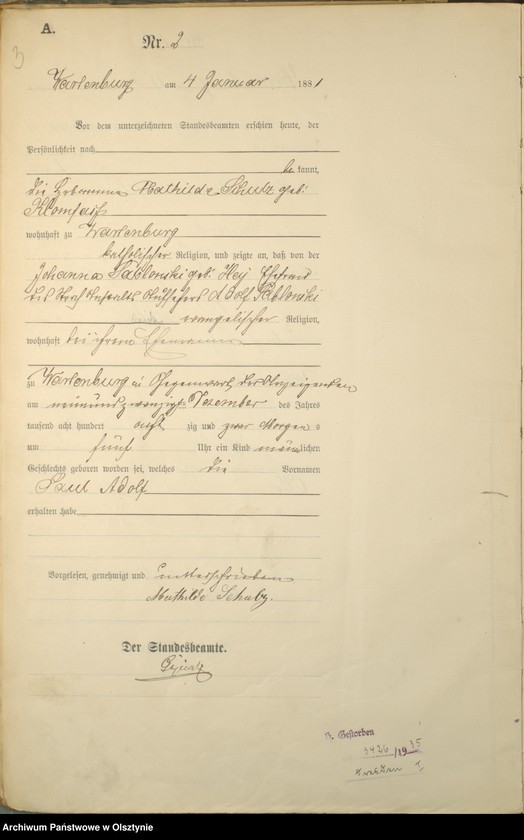 A.
3
Nr. 2
Wartenburg am 4 Januar 1881
Vor dem unterzeichneten Standesbeamten erschien heute, der
Persönlichkeit nach
bekannt,
die Hebamme Mathilde Schulz geb:
wohnhaft zu Wartenburg
katholischer Religion, und zeigte an, daß von der
Johanna geb: Hey Ehefrau
des Straf Anstalts Aufsehers Adolf
evangelischer Religion,
wohnhaft bei ihrem Ehemanne
zu Wartenburg in Gegenwart der Anzeigenden
am neunundzwanzigsten Dezember des Jahres
tausend acht hundert achtzig und zwar Morgens
um fünf Uhr ein Kind männlichen
Geschlechts geboren worden sei, welches die Vornamen
Paul Adolf
erhalten habe
Vorgelesen, genehmigt und unterschrieben
Mathilde Schulz.
Der Standesbeamte.
B. Gestorben
3426/1935
Archiwum Państwowe w Olsztynie